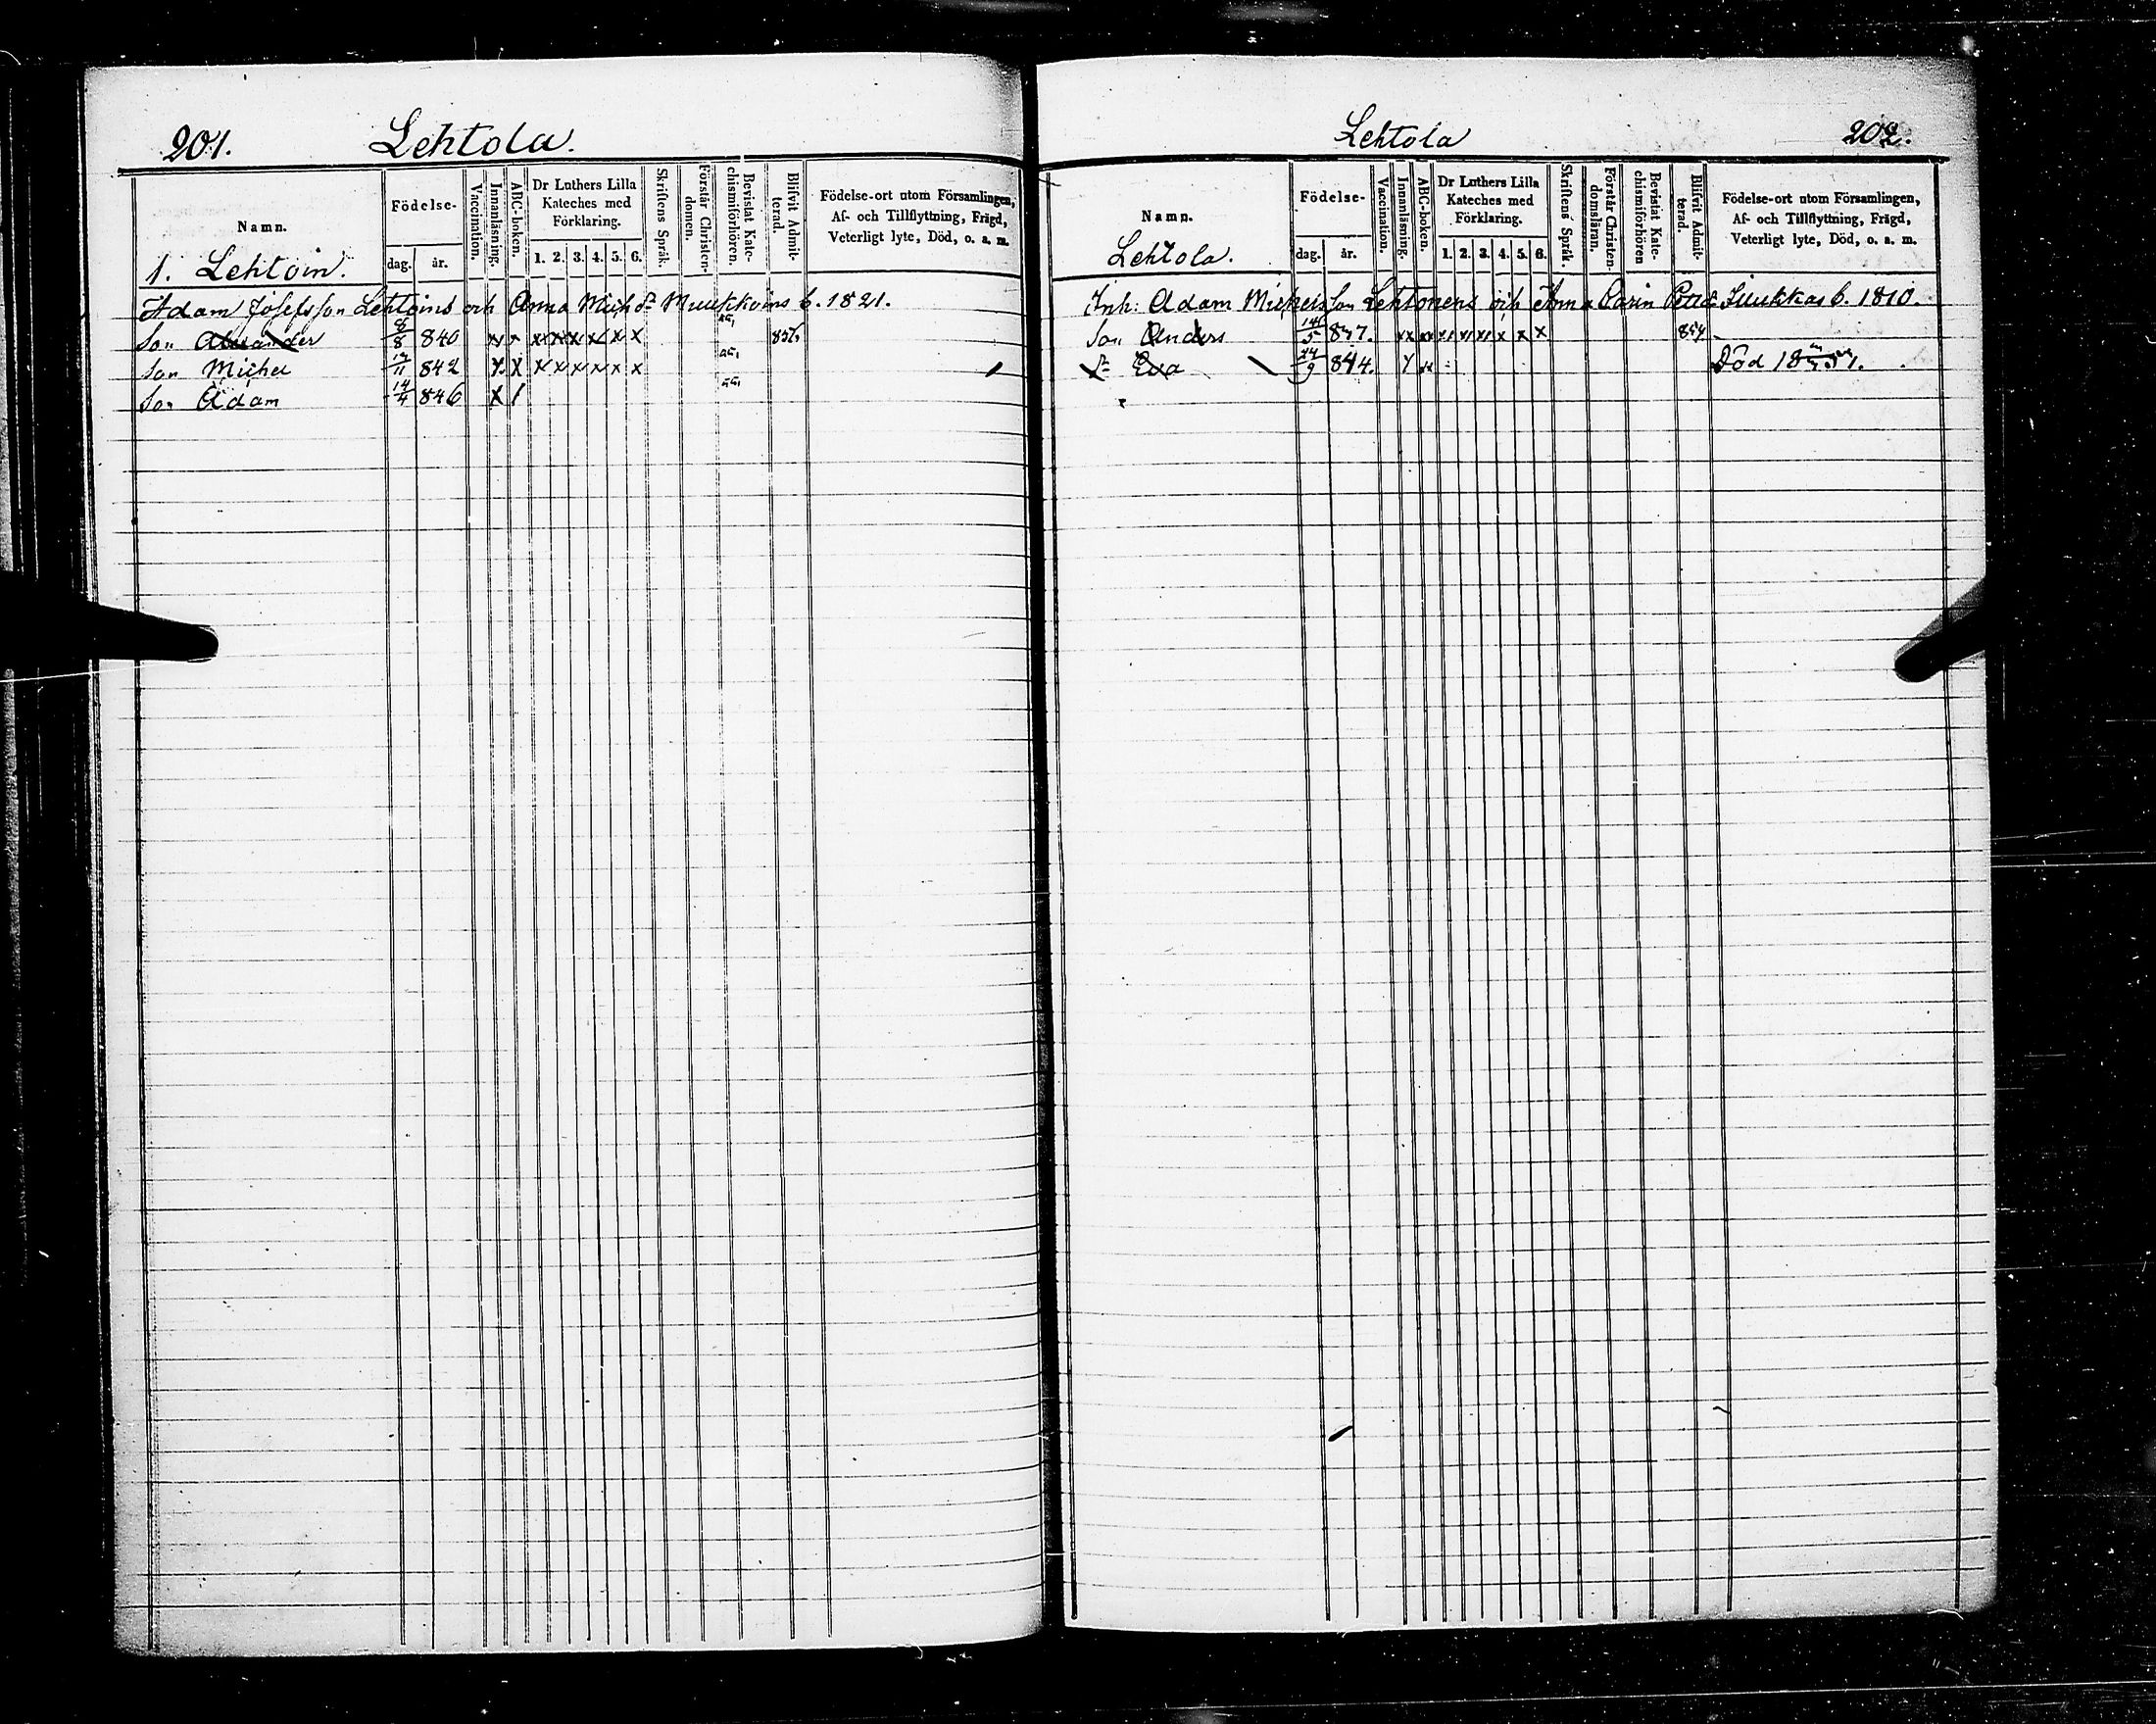 201. Lehtola.
Namn. Födelse- dag. år. Vaccination. Innanläsning. ABC-boken. Dr Luthers Lilla Kateches med Förklaring. 1. 2. 3. 4. 5. 6. Skriftens Språk. Förstår Christendomen. Bevistat Katechismiförhören. Blifvit Admitterad. Födelse-ort utom Församlingen, Af- och Tillflyttning, Frägd, Veterligt lyte, Död, o. a. m.
1. Lehtoin.
Adam Josefsson Lehtoins och Anna Mich dr Muukkoins b. 1821.
Son Alexander 8/8 840 x x x x x x x 856
Son Michel 12/11 842 x x x x x x x x
Son Adam 14/4 846 x /
Lehtola 202.
Namn. Födelse- dag. år. Vaccination. Innanläsning. ABC-boken. Dr Luthers Lilla Kateches med Förklaring. 1. 2. 3. 4. 5. 6. Skriftens Språk. Förstår Christendomsläran. Bevistat Katechismiförhören Blifvit Admitterad. Födelse-ort utom Församlingen, Af- och Tillflyttning, Frägd, Veterligt lyte, Död, o. a. m.
Lehtola.
Inh: Adam Michelsson Lehtonens och Anna Carin b. 1810.
Son Anders 14/5 837. xx xx x x x x x x
Eva 24/9 844. Död 1851.